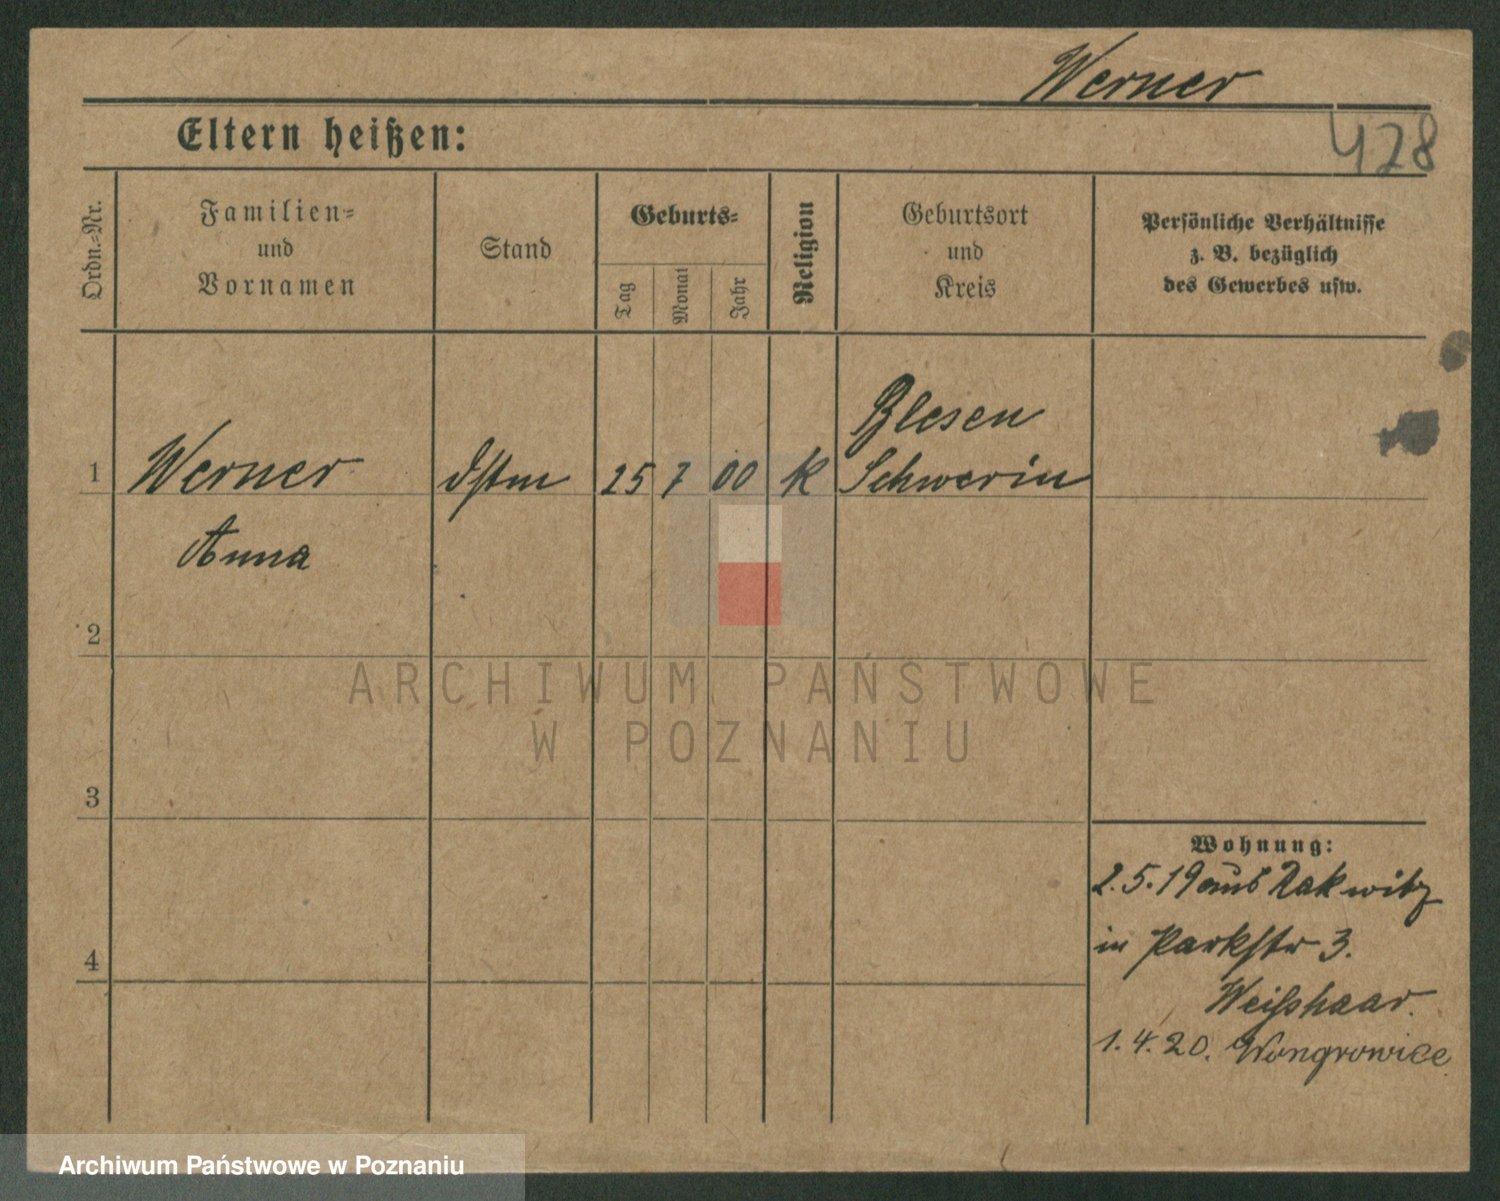 Werner
Eltern heißen:
478
Ordn.-Nr.
Familien-
und
Vornamen
Stand
Geburts-
Tag
Monat
Jahr
Religion
Geburtsort
und
Kreis
Persönliche Verhältnisse
z. B. bezüglich
des Gewerbes usw.
Blesen
1 Werner dstm 25 7 00 k Schwerin
Anna
2
ARCHIWUM PAŃSTWOWE
W POZNANIU
3
Wohnung:
2.5.19 aus Rakwitz
in Parkstr 3.
4
Weisshaar.
1.4.20. Wongrowice
Archiwum Państwowe w Poznaniu